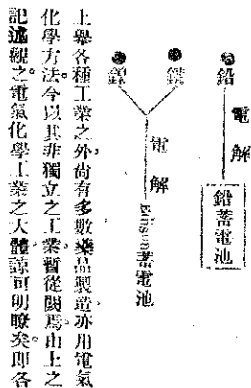 ●鉛 電解 鉛蓄電池
●鐵
●鎳
電解 Edison蓄電池
上舉各種工業之外尚有多數藥品製造亦用電氣
化學方法今以其非獨立之工業暫從闕焉由上之
記述觀之電氣化學工業之大體諒可明瞭矣即各